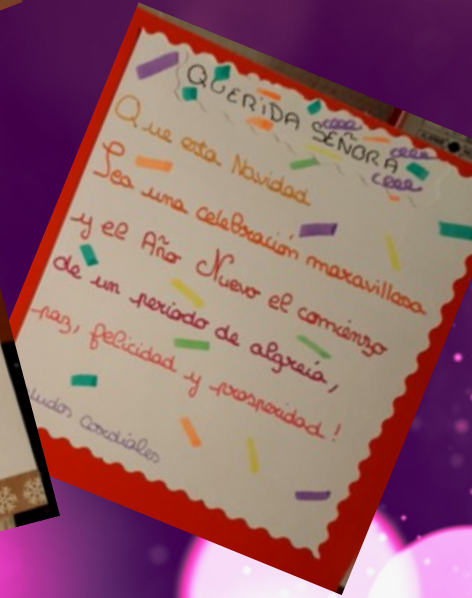 QUERIDA SEÑORA
Que esta Navidad
Sea una celebración maravillosa
y el Año Nuevo el comienzo
de un periodo de algreia,
paz, felicidad y prosperidad!
ludos Cordiales